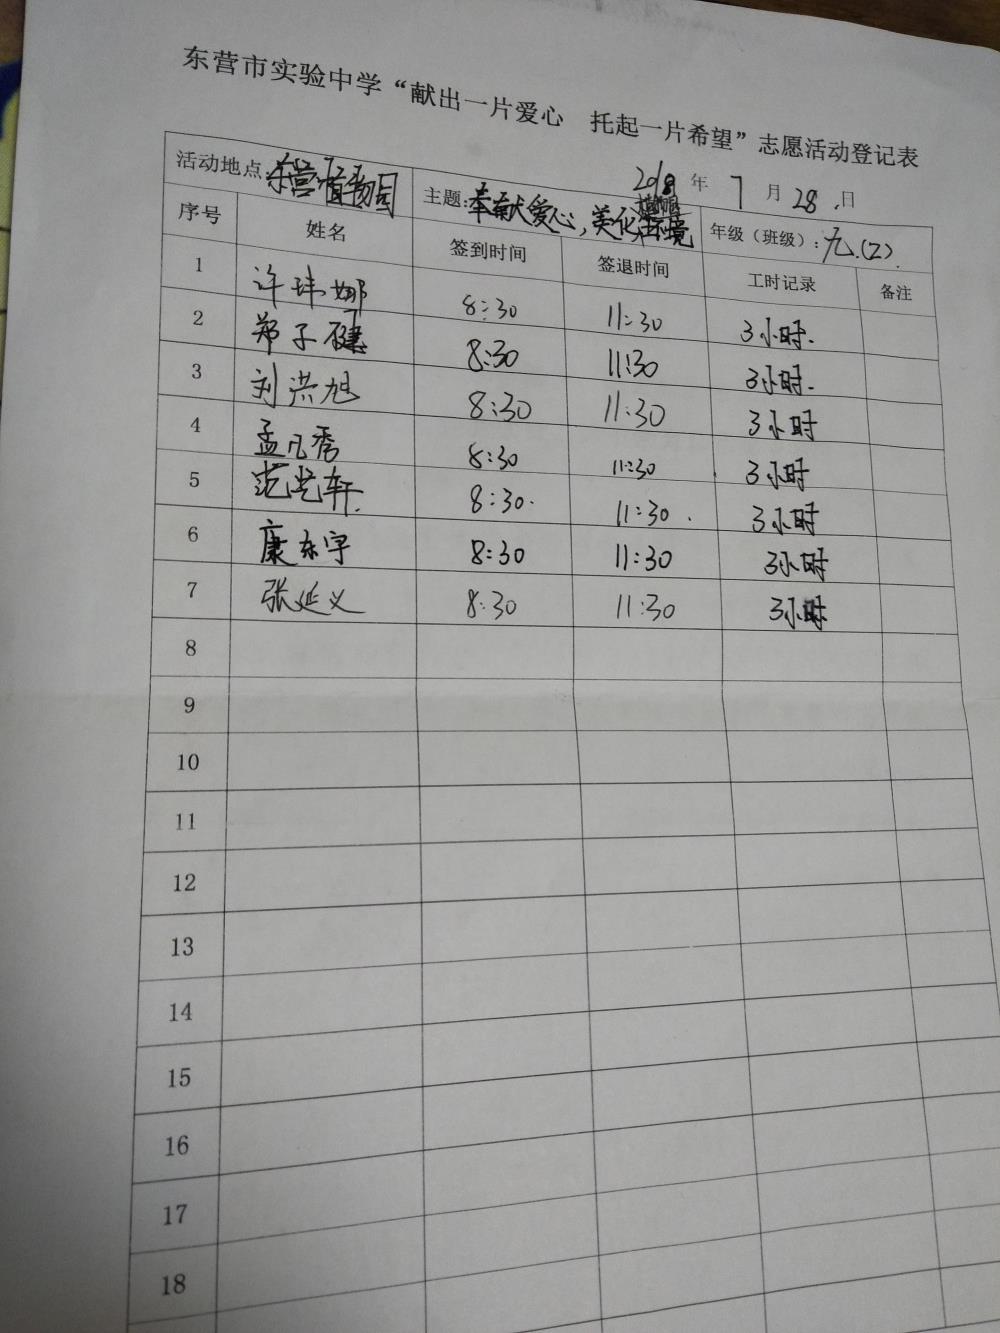 东营市实验中学“献出一片爱心 托起一片希望”志愿活动登记表
2018年 7月 28.日
活动地点:东营植物园 主题:奉献爱心,美化环境 年级(班级):九.(2).
序号 姓名 签到时间 签退时间 工时记录 备注
1 许玮娜 8:30 11:30 3小时.
2 郑子健 8:30 11:30 3小时.
3 刘洪旭 8:30 11:30 3小时
4 孟凡秀 8:30 11:30 3小时
5 范艺轩. 8:30. 11:30. 3小时
6 康东宇 8:30 11:30 3小时
7 张延义 8:30 11:30 3小时
8
9
10
11
12
13
14
15
16
17
18